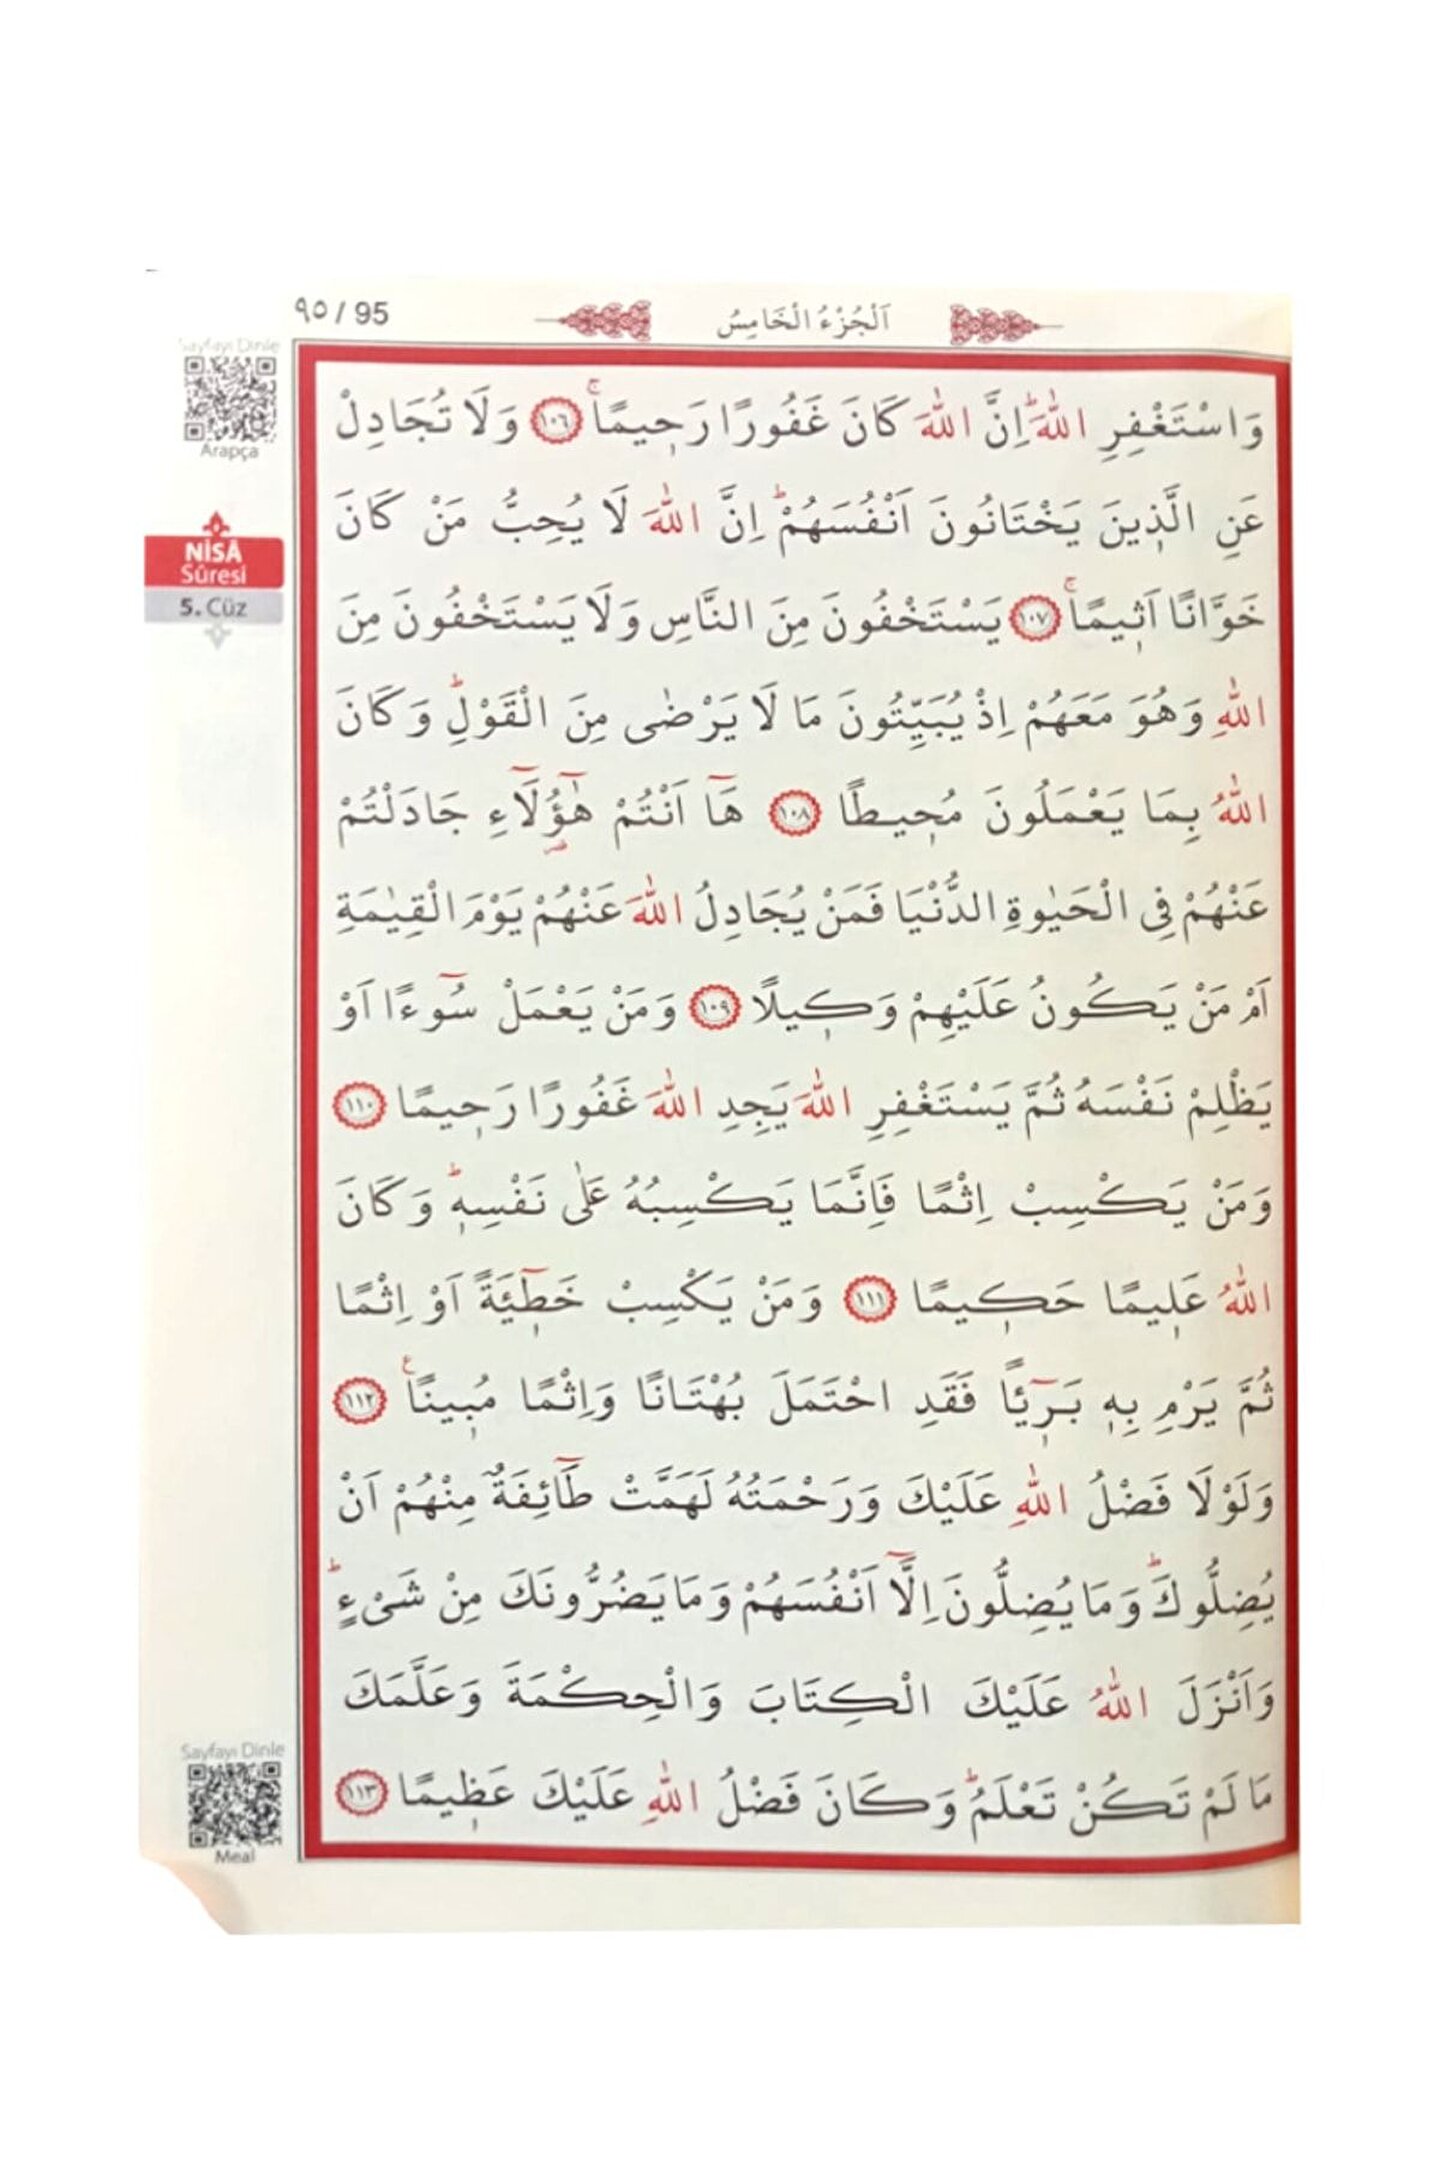 ٩٥ / 95
اَلْجُزْءُ الْخَامِسُ
Sayfayı Dinle
Arapça
NİSÂ
Sûresi
5. Cüz
وَاسْتَغْفِرِ اللّٰهَۜ اِنَّ اللّٰهَ كَانَ غَفُورًا رَحٖيمًاۚ ﴿١٠٦﴾ وَلَا تُجَادِلْ
عَنِ الَّذٖينَ يَخْتَانُونَ اَنْفُسَهُمْۜ اِنَّ اللّٰهَ لَا يُحِبُّ مَنْ كَانَ
خَوَّانًا اَثٖيمًاۚ ﴿١٠٧﴾ يَسْتَخْفُونَ مِنَ النَّاسِ وَلَا يَسْتَخْفُونَ مِنَ
اللّٰهِ وَهُوَ مَعَهُمْ اِذْ يُبَيِّتُونَ مَا لَا يَرْضٰى مِنَ الْقَوْلِۜ وَكَانَ
اللّٰهُ بِمَا يَعْمَلُونَ مُحٖيطًا ﴿١٠٨﴾ هَٓا اَنْتُمْ هٰٓؤُ۬لَٓاءِ جَادَلْتُمْ
عَنْهُمْ فِي الْحَيٰوةِ الدُّنْيَا فَمَنْ يُجَادِلُ اللّٰهَ عَنْهُمْ يَوْمَ الْقِيٰمَةِ
اَمْ مَنْ يَكُونُ عَلَيْهِمْ وَكٖيلًا ﴿١٠٩﴾ وَمَنْ يَعْمَلْ سُٓوءًا اَوْ
يَظْلِمْ نَفْسَهُ ثُمَّ يَسْتَغْفِرِ اللّٰهَ يَجِدِ اللّٰهَ غَفُورًا رَحٖيمًا ﴿١١٠﴾
وَمَنْ يَكْسِبْ اِثْمًا فَاِنَّمَا يَكْسِبُهُ عَلٰى نَفْسِهٖۜ وَكَانَ
اللّٰهُ عَلٖيمًا حَكٖيمًا ﴿١١١﴾ وَمَنْ يَكْسِبْ خَطٖٓيـَٔةً اَوْ اِثْمًا
ثُمَّ يَرْمِ بِهٖ بَرٖٓيـًٔا فَقَدِ احْتَمَلَ بُهْتَانًا وَاِثْمًا مُبٖينًاࣖ ﴿١١٢﴾
وَلَوْلَا فَضْلُ اللّٰهِ عَلَيْكَ وَرَحْمَتُهُ لَهَمَّتْ طَٓائِفَةٌ مِنْهُمْ اَنْ
يُضِلُّوكَۜ وَمَا يُضِلُّونَ اِلَّٓا اَنْفُسَهُمْ وَمَا يَضُرُّونَكَ مِنْ شَيْءٍۜ
وَاَنْزَلَ اللّٰهُ عَلَيْكَ الْكِتَابَ وَالْحِكْمَةَ وَعَلَّمَكَ
مَا لَمْ تَكُنْ تَعْلَمُۜ وَكَانَ فَضْلُ اللّٰهِ عَلَيْكَ عَظٖيمًا ﴿١١٣﴾
Sayfayı Dinle
Meal